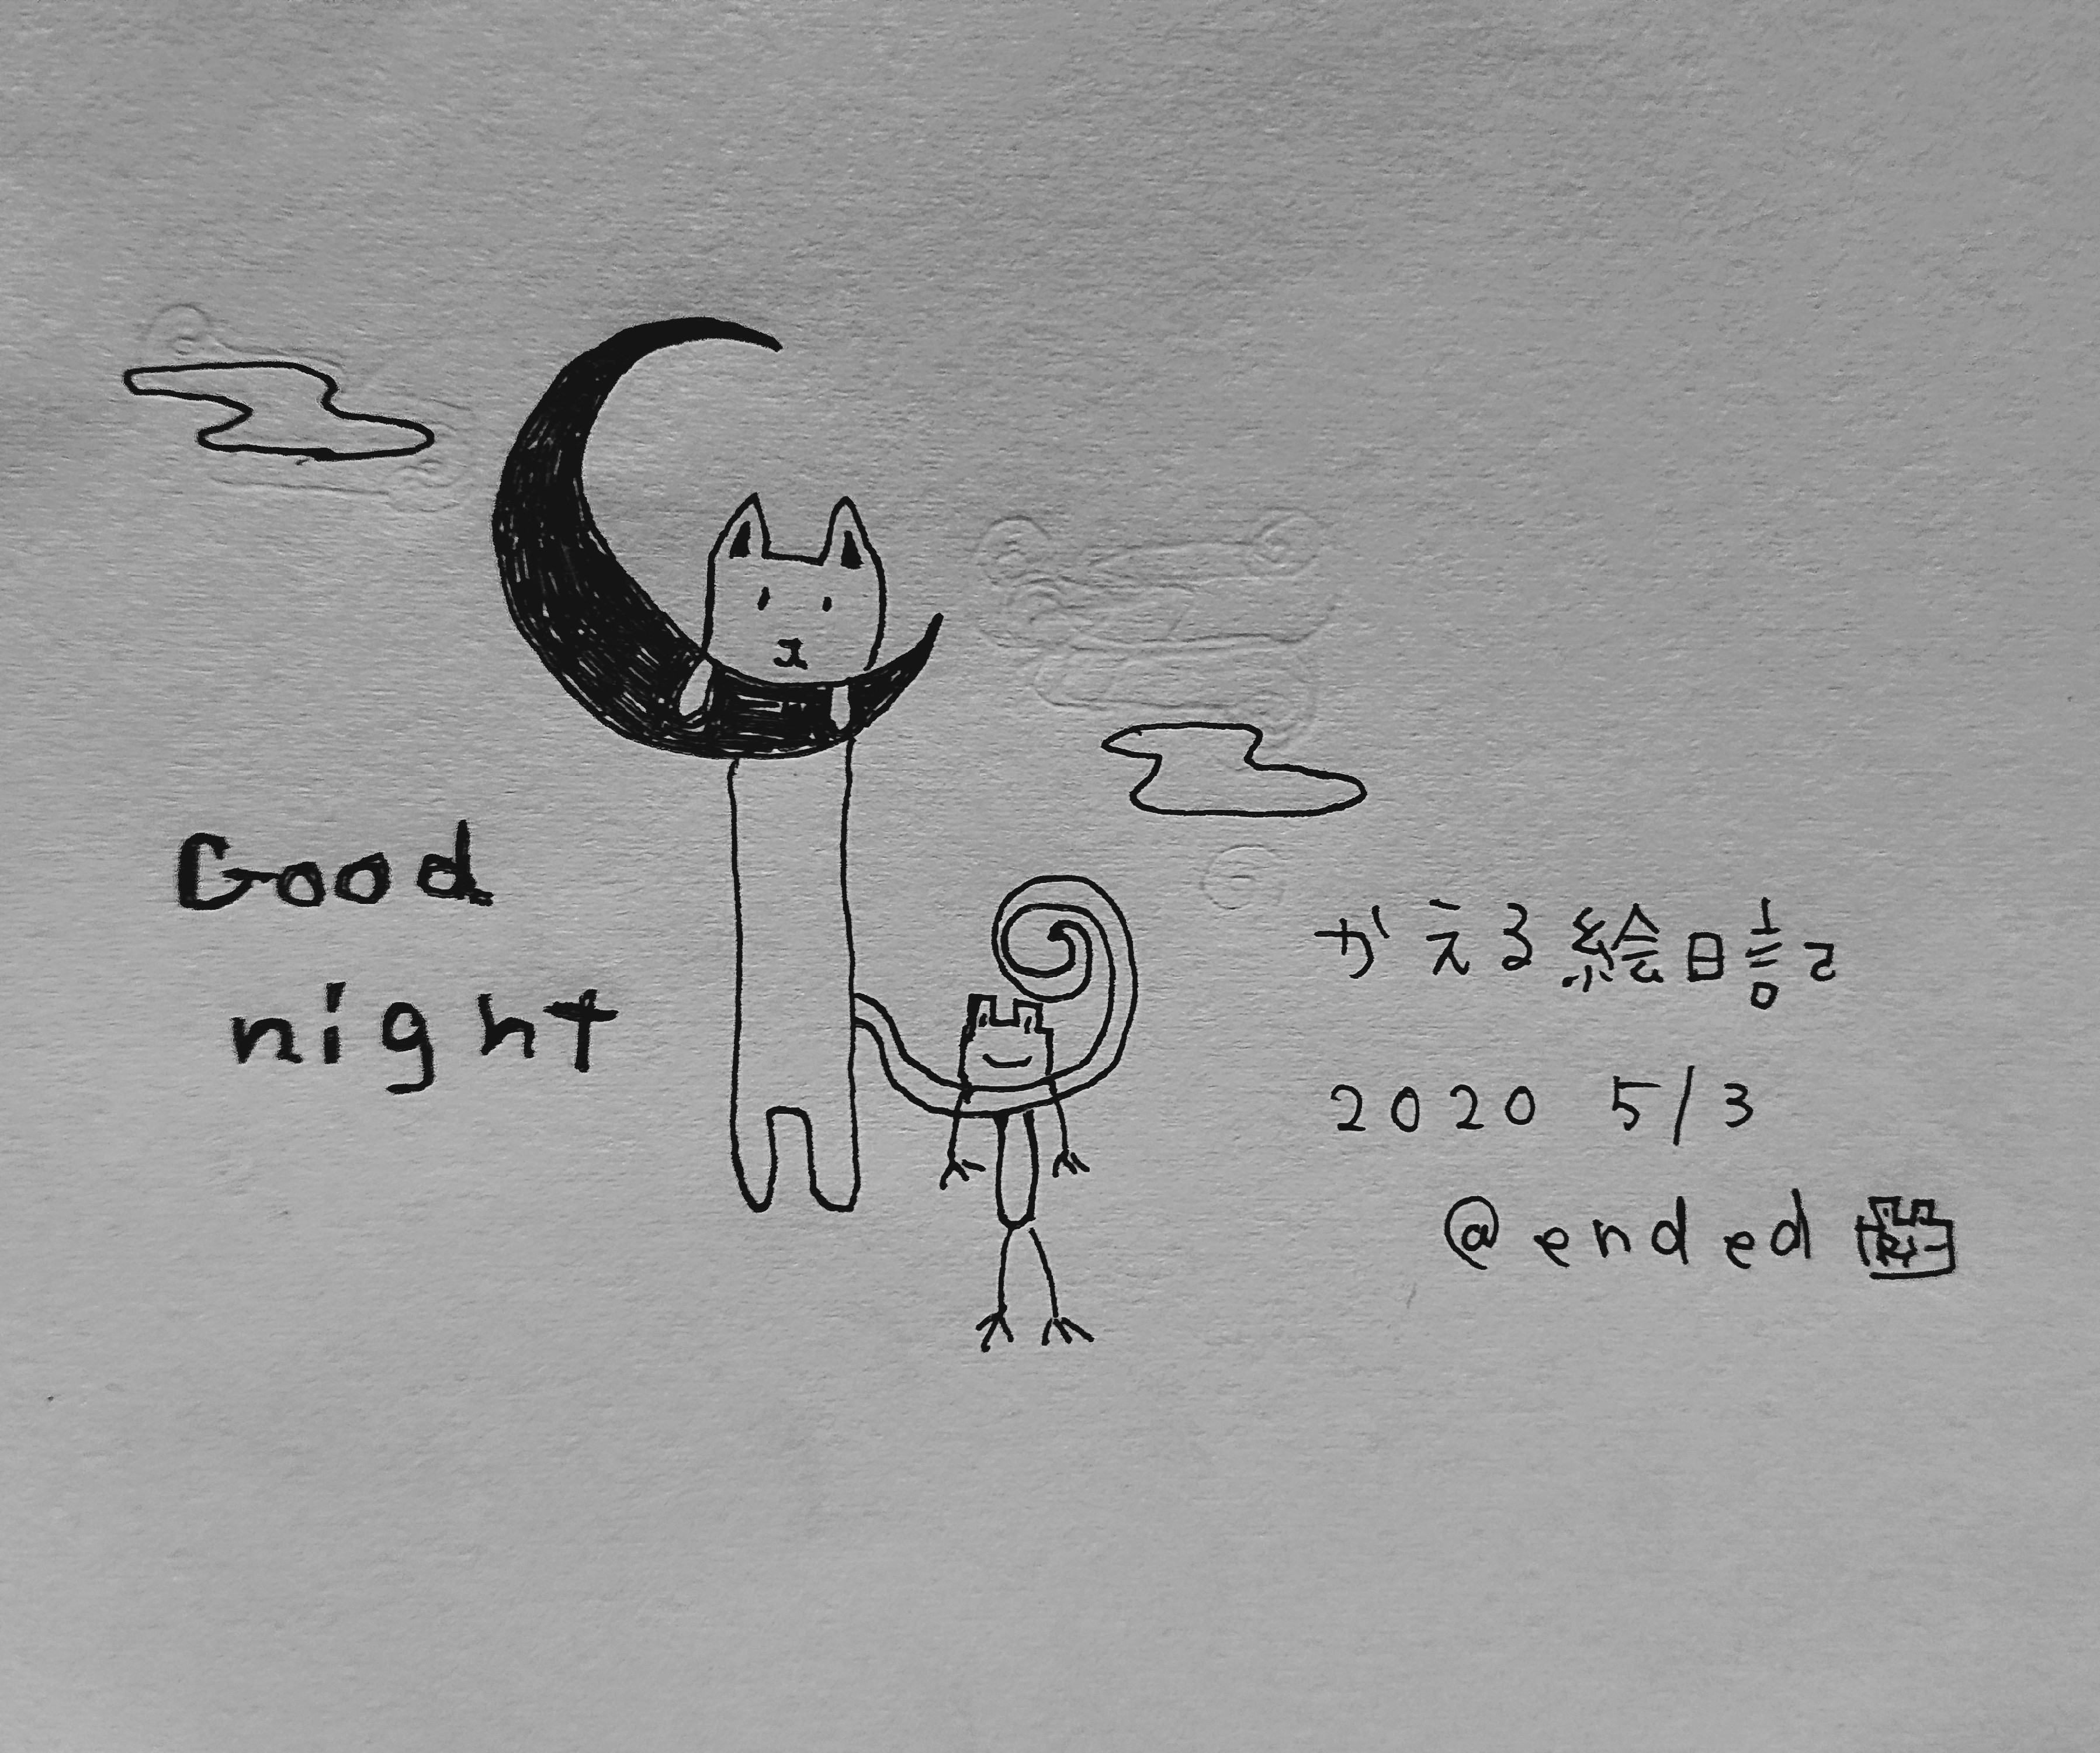 Good
night
かえる絵日記
2020 5/3
@ended